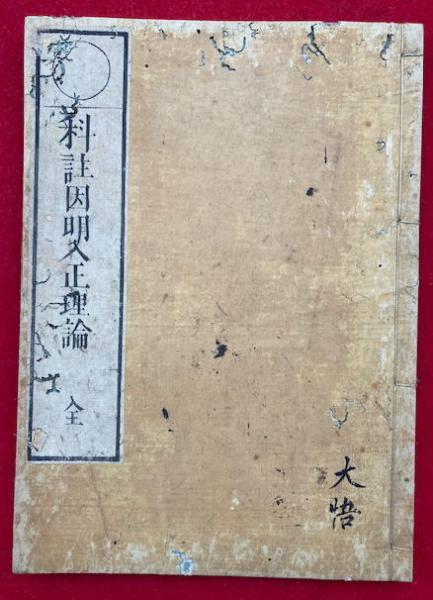 科註因明入正理論 全
大悟